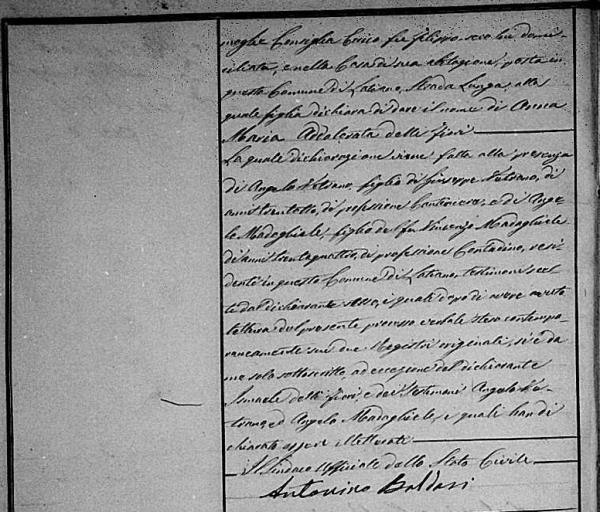 moglie Consiglia Errico fu filippo seco lui domi-
ciliata, e nella Casa di sua abitazione, posta in
questo Comune di Latiano, Strada Lunga, alla
quale figlia dichiara di dare il nome di Anna
Maria Addolorata delli fiori
La quale dichiarazione viene fatta alla presenza
di Angelo figlio di Giuseppe di
anni trentotto, di professione e di Ange-
lo Madaghiele, figlio del fu Vincenzo Madaghiele
di anni trentaquattro, di professione Contadino, resi-
denti in questo Comune di Latiano, testimoni scel-
ti dal dichiarante stesso, i quali dopo di avere avuto
lettura del presente processo verbale steso contempo-
raneamente sui due Registri originali, si è da
me solo sottoscritto, ad eccezione del dichiarante
delli fiori, e dei testimoni Angelo
ed Angelo Madaghiele, i quali han di
chiarato essere illetterati
Il Sindaco Uffiziale dello Stato Civile
Antonino Baldari